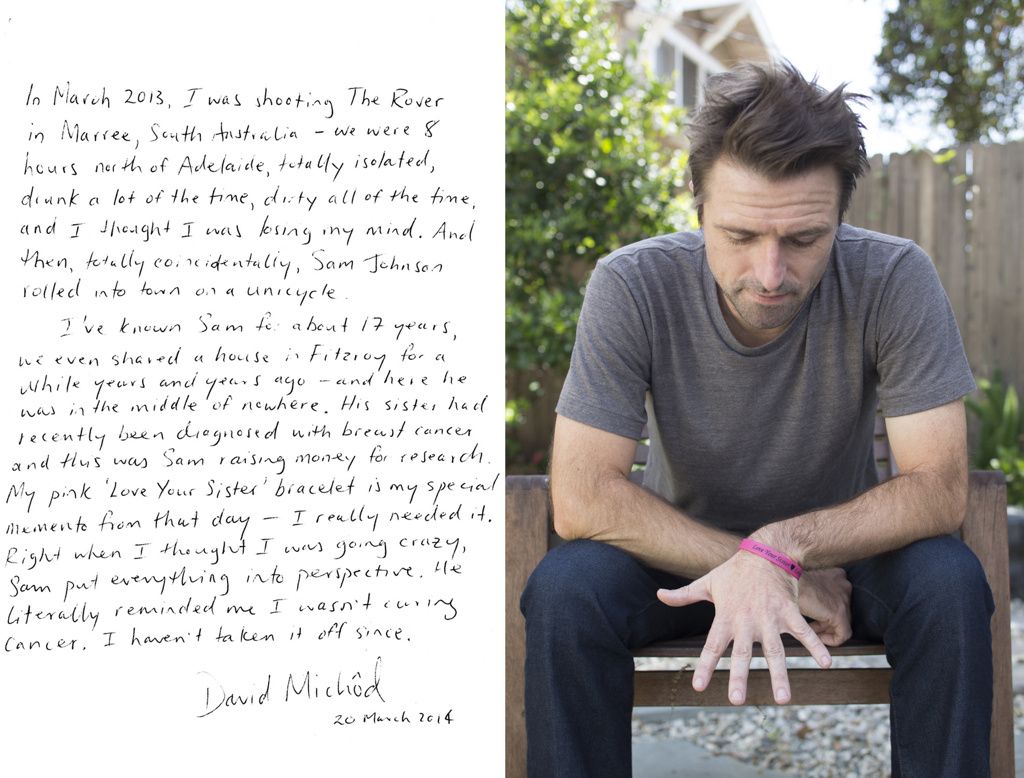 In March 2013, I was shooting The Rover
in Marree, South Australia – we were 8
hours north of Adelaide, totally isolated,
drunk a lot of the time, dirty all of the time,
and I thought I was losing my mind. And
then, totally coincidentally, Sam Johnson
rolled into town on a unicycle.
I've known Sam for about 17 years,
we even shared a house in Fitzroy for a
while years and years ago – and here he
was in the middle of nowhere. His sister had
recently been diagnosed with breast cancer
and this was Sam raising money for research.
My pink 'Love Your Sister' bracelet is my special
memento from that day – I really needed it.
Right when I thought I was going crazy,
Sam put everything into perspective. He
literally reminded me I wasn't curing
cancer. I haven't taken it off since.
David Michôd
20 March 2014
Love Your Sister